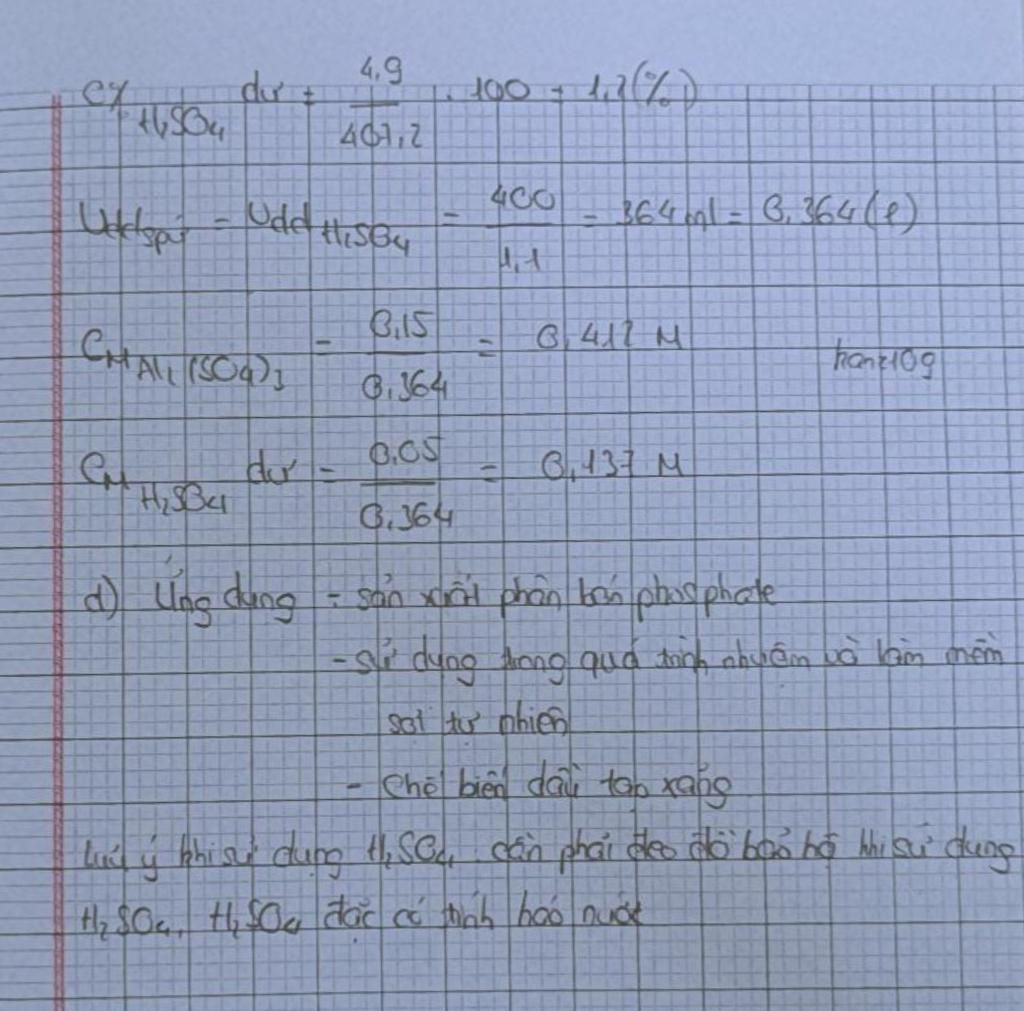 C%H₂SO₄ dư = 4,9/407,2 . 100 = 1,2(%)
Vddspứ = VddH₂SO₄ = 400/1,1 = 364 ml = 0,364 (l)
CM Al₂(SO₄)₃ = 0,15/0,364 = 0,412 M
hanz10g
CM H₂SO₄ dư = 0,05/0,364 = 0,137 M
d) Ứng dụng = sản xuất phân bón phosphate
- sử dụng trong quá trình nhuộm và làm mềm
sợi tự nhiên
- Chế biến dầu tạp xăng
Lưu ý khi sử dụng H₂SO₄ cần phải đeo đồ bảo hộ khi sử dụng
H₂SO₄, H₂SO₄ đặc có tính háo nước